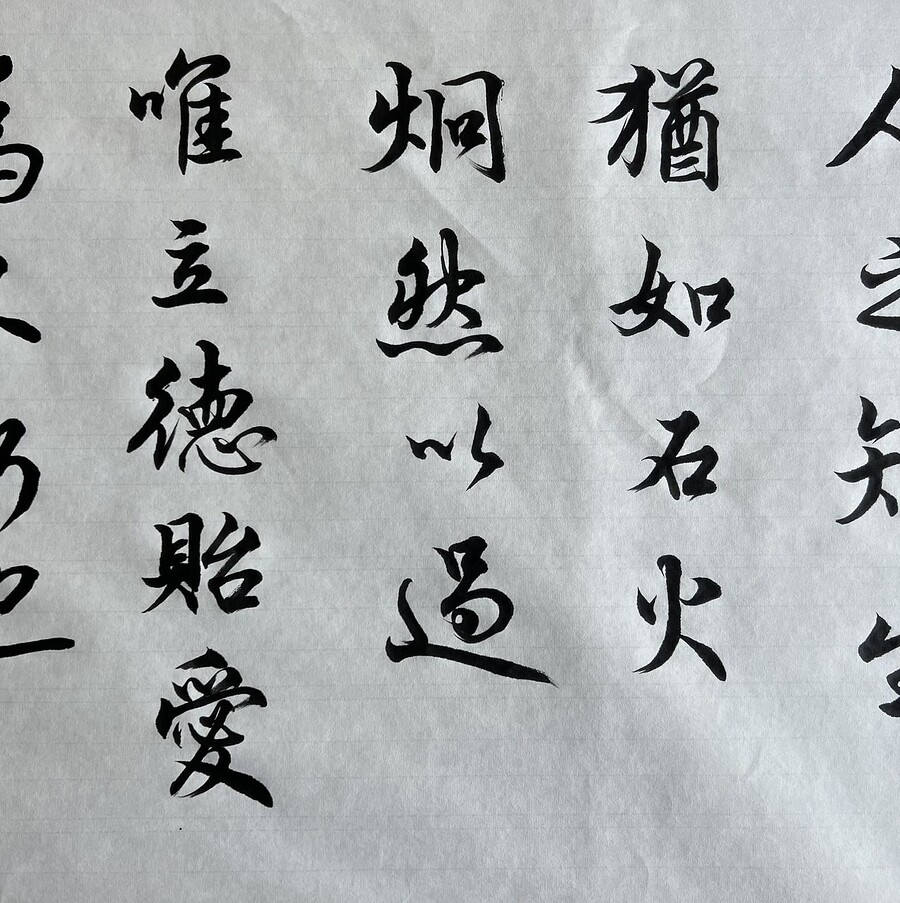 人之生
猶如石火
炯然以過
唯立德貽愛
為也